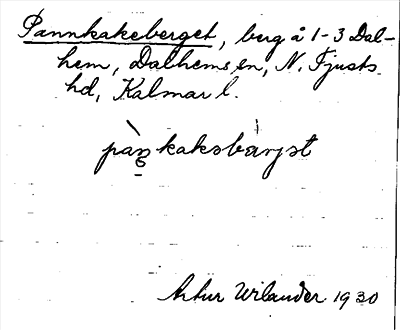 Pannkakeberget, berg å 1-3 Dal-
hem, Dalhems sn, N. Tjusts
hd, Kalmar l.
pàŋkaksbærjət
Artur Wilander 1930